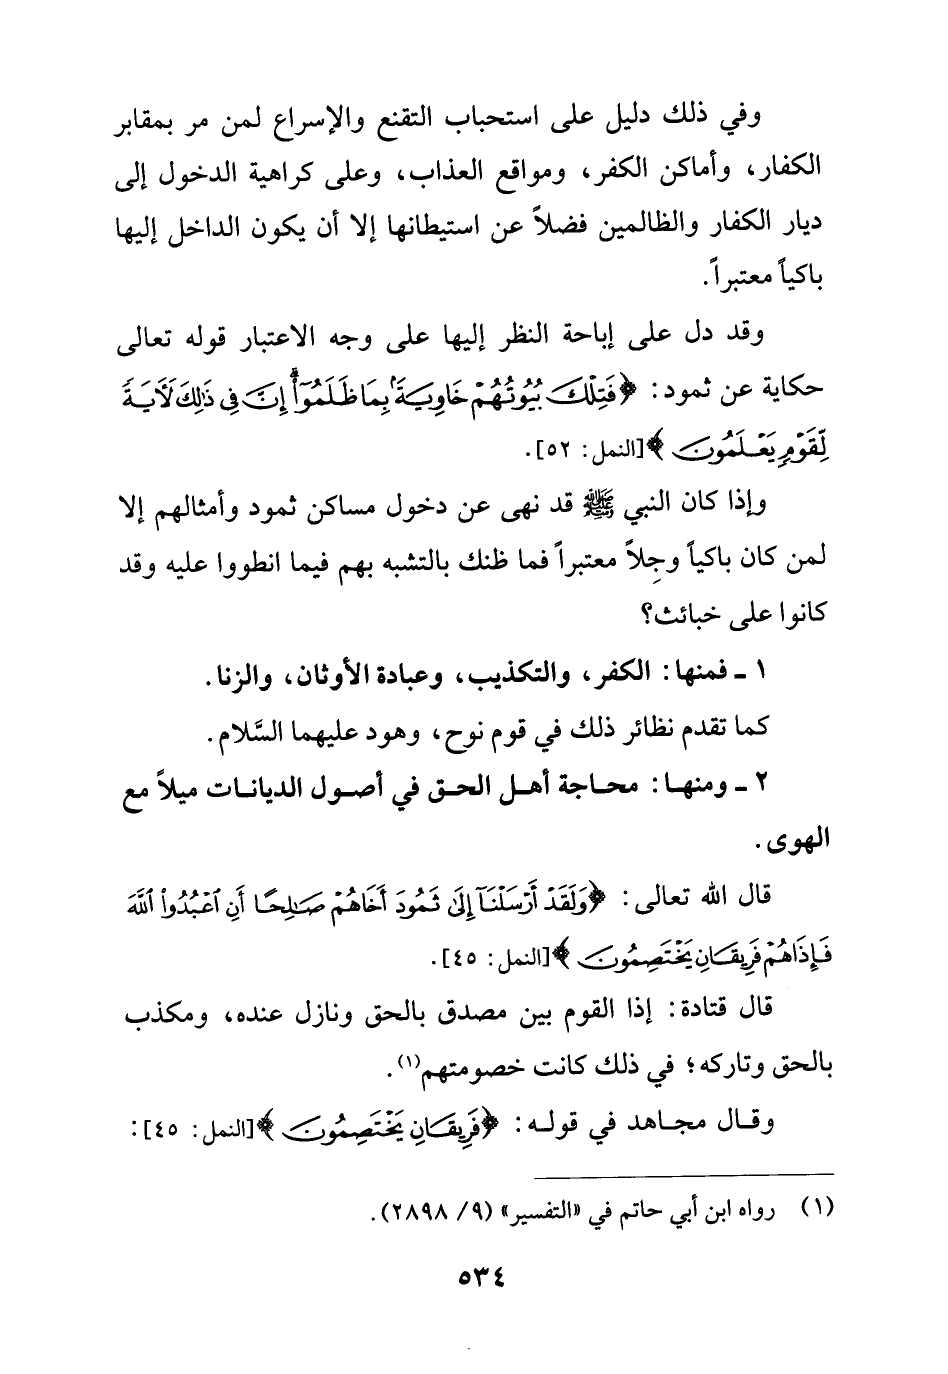 وفي ذلك دليل على استحباب التقنع والإسراع لمن مر بمقابر
الكفار، وأماكن الكفر، ومواقع العذاب، وعلى كراهية الدخول إلى
ديار الكفار والظالمين فضلاً عن استيطانها إلا أن يكون الداخل إليها
باكياً معتبراً.
وقد دل على إباحة النظر إليها على وجه الاعتبار قوله تعالى
حكاية عن ثمود: ﴿فَتِلْكَ بُيُوتُهُمْ خَاوِيَةً بِمَا ظَلَمُوٓا۟ إِنَّ فِى ذَٰلِكَ لَآيَةً
لِّقَوْمٍ يَعْلَمُونَ﴾ [النمل: ٥٢].
وإذا كان النبي ﷺ قد نهى عن دخول مساكن ثمود وأمثالهم إلا
لمن كان باكياً وجِلاً معتبراً فما ظنك بالتشبه بهم فيما انطووا عليه وقد
كانوا على خبائث؟
١ ـ فمنها: الكفر، والتكذيب، وعبادة الأوثان، والزنا.
كما تقدم نظائر ذلك في قوم نوح، وهود عليهما السَّلام.
٢ ـ ومنها: محاجة أهل الحق في أصول الديانات ميلاً مع
الهوى.
قال الله تعالى: ﴿وَلَقَدْ أَرْسَلْنَآ إِلَىٰ ثَمُودَ أَخَاهُمْ صَـٰلِحًا أَنِ ٱعْبُدُوا۟ ٱللَّهَ
فَإِذَا هُمْ فَرِيقَانِ يَخْتَصِمُونَ﴾ [النمل: ٤٥].
قال قتادة: إذا القوم بين مصدق بالحق ونازل عنده، ومكذب
بالحق وتاركه؛ في ذلك كانت خصومتهم(١).
وقال مجاهد في قوله: ﴿فَرِيقَانِ يَخْتَصِمُونَ﴾ [النمل: ٤٥]:
(١) رواه ابن أبي حاتم في «التفسير» (٩/ ٢٨٩٨).
٥٣٤